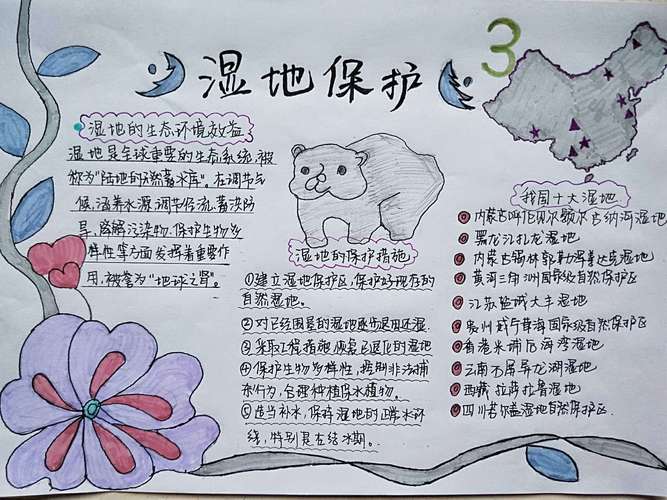 湿地保护
3
湿地的生态环境效益
湿地是全球重要的生态系统,被
称为"陆地的天然蓄水库"。在调节气
候,涵养水源,调节径流,蓄洪防
旱,降解污染物,保护生物多
样性等方面发挥着重要作
用,被誉为"地球之肾"。
湿地的保护措施
①建立湿地保护区,保护好现存的
自然湿地。
②对已经围垦的湿地逐步退田还湿.
③采取工程措施恢复已退化的湿地
④保护生物多样性,控制非法捕
杀行为,合理种植保水植物。
⑤适当补水,保障湿地的正常水环
境,特别是在结冰期。
我国十大湿地
内蒙古呼伦贝尔额尔古纳河湿地
黑龙江扎龙湿地
内蒙古锡林郭勒
黄河三角洲国家级自然保护区
江苏盐城大丰湿地
贵州威宁草海国家级自然保护区
香港米埔后海湾湿地
云南
西藏拉萨拉鲁湿地
四川若尔盖湿地自然保护区